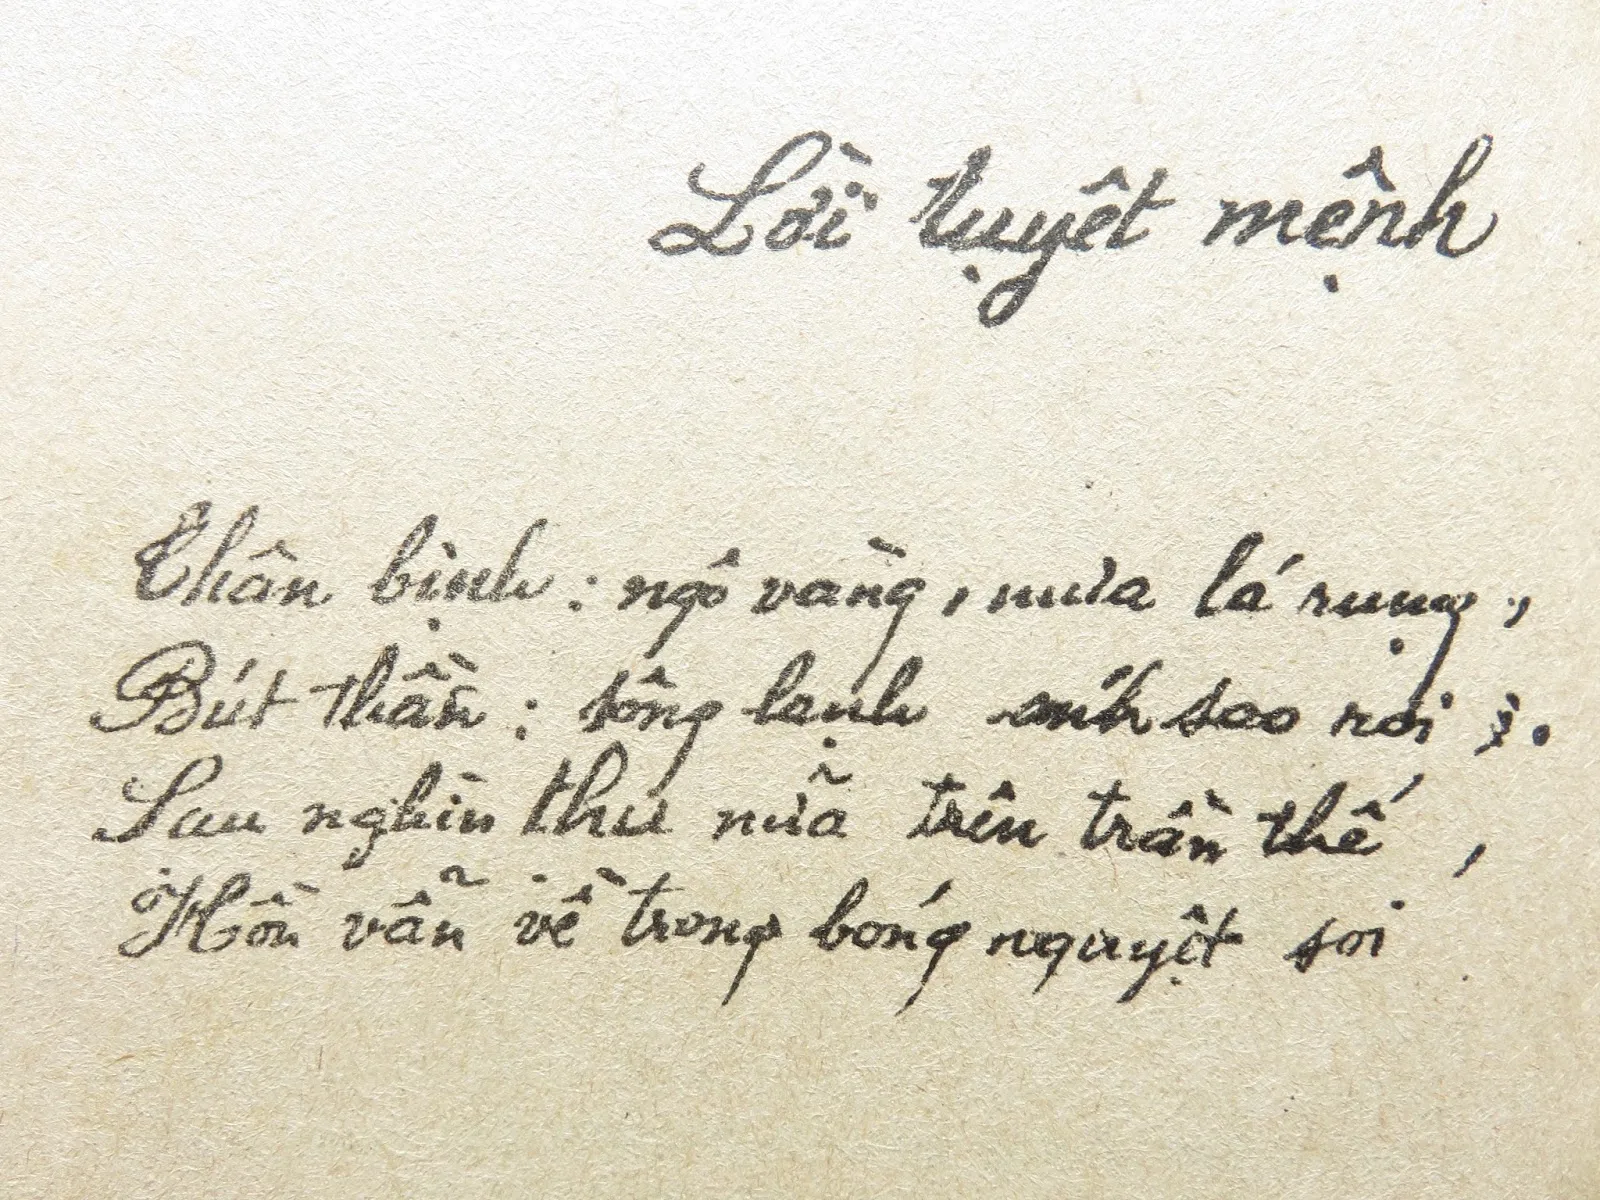 Lời tuyệt mệnh
Thân bịnh : ngô vàng, mưa lá rụng,
Bút thần : sông lạnh ánh sao rơi.
Sau nghìn thu nữa trên trần thế,
Hồn vẫn về trong bóng nguyệt soi